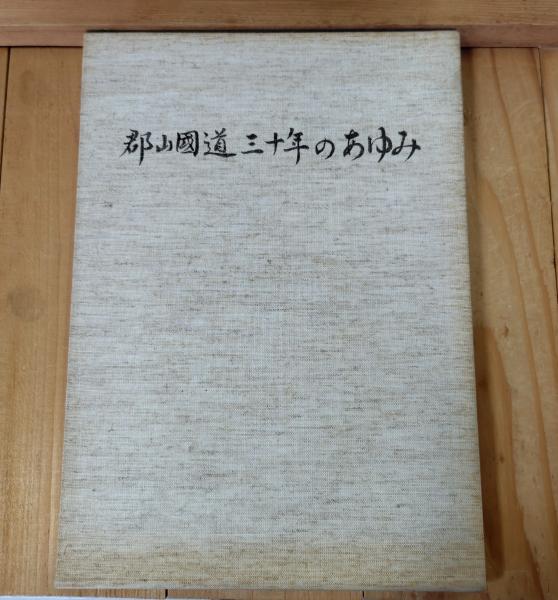 郡山國道三十年のあゆみ